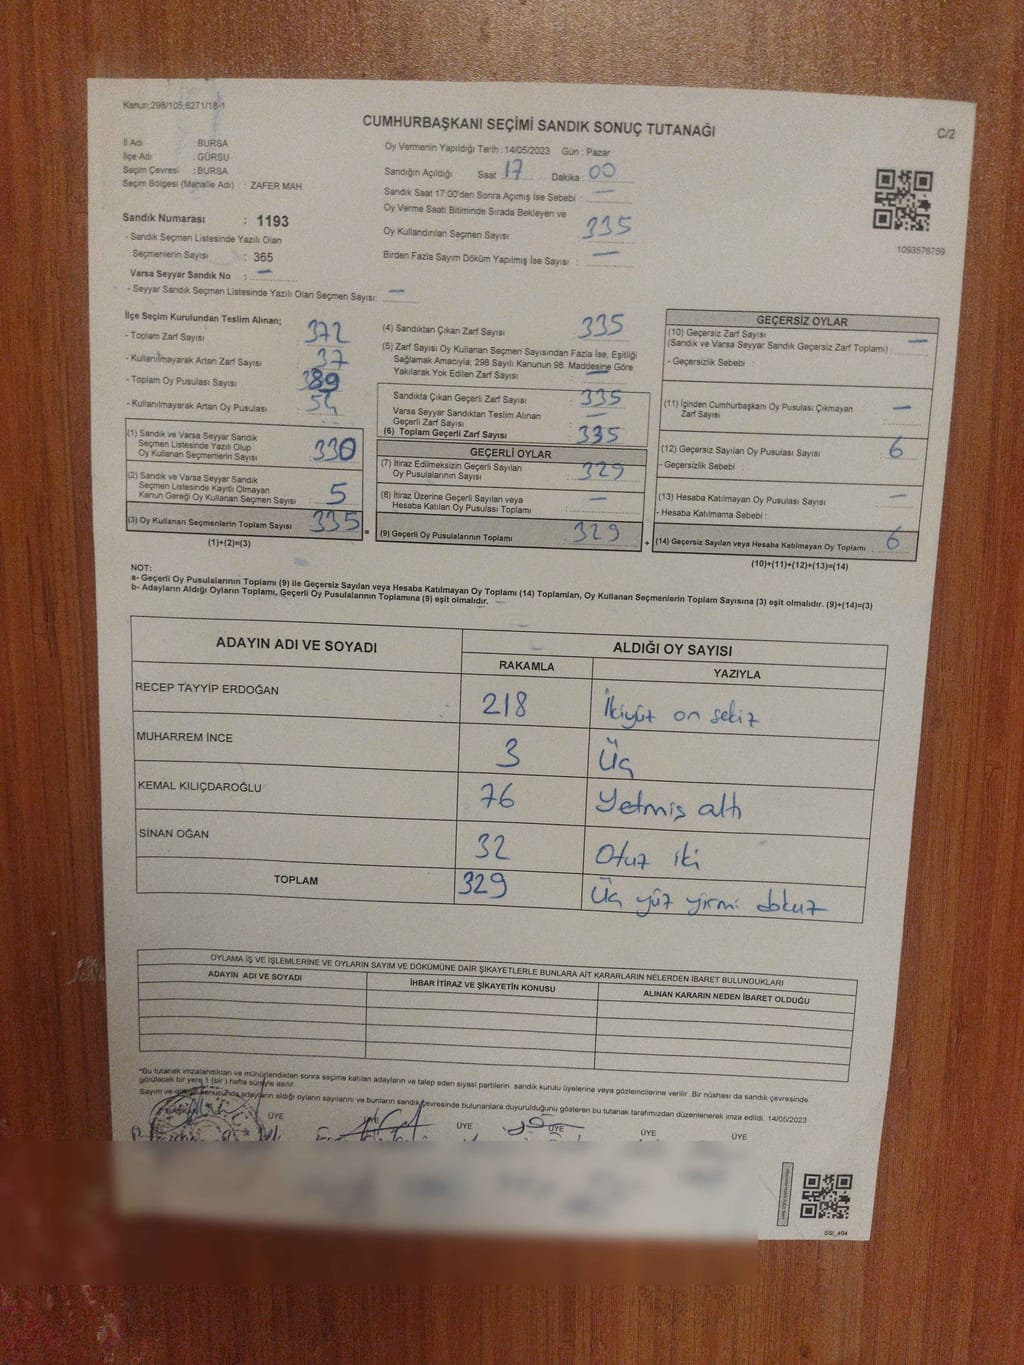 Kanun:298/105;6271/18-1
CUMHURBAŞKANI SEÇİMİ SANDIK SONUÇ TUTANAĞI
C/2
İl Adı : BURSA
İlçe Adı : GÜRSU
Seçim Çevresi : BURSA
Seçim Bölgesi (Mahalle Adı) : ZAFER MAH.
Sandık Numarası : 1193
- Sandık Seçmen Listesinde Yazılı Olan
Seçmenlerin Sayısı : 365
Varsa Seyyar Sandık No : —
- Seyyar Sandık Seçmen Listesinde Yazılı Olan Seçmen Sayısı: —
Oy Vermenin Yapıldığı Tarih : 14/05/2023 Gün : Pazar
Sandığın Açıldığı Saat : 17 Dakika : 00
Sandık Saat 17:00'den Sonra Açımış İse Sebebi : —
Oy Verme Saati Bitiminde Sırada Bekleyen ve
Oy Kullandırılan Seçmen Sayısı : 335
Birden Fazla Sayım Döküm Yapılmış İse Sayısı : —
1093576759
İlçe Seçim Kurulundan Teslim Alınan;
- Toplam Zarf Sayısı : 372
- Kullanılmayarak Artan Zarf Sayısı : 37
- Toplam Oy Pusulası Sayısı : 389
- Kullanılmayarak Artan Oy Pusulası : 54
(1) Sandık ve Varsa Seyyar Sandık
Seçmen Listesinde Yazılı Olup
Oy Kullanan Seçmenlerin Sayısı : 330
(2) Sandık ve Varsa Seyyar Sandık
Seçmen Listesinde Kayıtlı Olmayan
Kanun Gereği Oy Kullanan Seçmen Sayısı : 5
(3) Oy Kullanan Seçmenlerin Toplam Sayısı : 335
(1)+(2)=(3)
=
(4) Sandıktan Çıkan Zarf Sayısı : 335
(5) Zarf Sayısı Oy Kullanan Seçmen Sayısından Fazla İse, Eşitliği
Sağlamak Amacıyla; 298 Sayılı Kanunun 98. Maddesine Göre
Yakılarak Yok Edilen Zarf Sayısı : —
Sandıkta Çıkan Geçerli Zarf Sayısı : 335
Varsa Seyyar Sandıktan Teslim Alınan
Geçerli Zarf Sayısı : —
(6) Toplam Geçerli Zarf Sayısı : 335
GEÇERLİ OYLAR
(7) İtiraz Edilmeksizin Geçerli Sayılan
Oy Pusulalarının Sayısı : 329
(8) İtiraz Üzerine Geçerli Sayılan veya
Hesaba Katılan Oy Pusulası Toplamı : —
(9) Geçerli Oy Pusulalarının Toplamı : 329
+
GEÇERSİZ OYLAR
(10) Geçersiz Zarf Sayısı
(Sandık ve Varsa Seyyar Sandık Geçersiz Zarf Toplamı) : —
- Geçersizlik Sebebi :
(11) İçinden Cumhurbaşkanı Oy Pusulası Çıkmayan
Zarf Sayısı : —
(12) Geçersiz Sayılan Oy Pusulası Sayısı : 6
- Geçersizlik Sebebi :
(13) Hesaba Katılmayan Oy Pusulası Sayısı : —
- Hesaba Katılmama Sebebi :
(14) Geçersiz Sayılan veya Hesaba Katılmayan Oy Toplamı : 6
(10)+(11)+(12)+(13)=(14)
NOT:
a- Geçerli Oy Pusulalarının Toplamı (9) ile Geçersiz Sayılan veya Hesaba Katılmayan Oy Toplamı (14) Toplamları, Oy Kullanan Seçmenlerin Toplam Sayısına (3) eşit olmalıdır. (9)+(14)=(3)
b- Adayların Aldığı Oyların Toplamı, Geçerli Oy Pusulalarının Toplamına (9) eşit olmalıdır.
ADAYIN ADI VE SOYADI ALDIĞI OY SAYISI
RAKAMLA YAZIYLA
RECEP TAYYİP ERDOĞAN 218 İkiyüz on sekiz
MUHARREM İNCE 3 Üç
KEMAL KILIÇDAROĞLU 76 Yetmiş altı
SİNAN OĞAN 32 Otuz iki
TOPLAM 329 Üç yüz yirmi dokuz
OYLAMA İŞ VE İŞLEMLERİNE VE OYLARIN SAYIM VE DÖKÜMÜNE DAİR ŞİKAYETLERLE BUNLARA AİT KARARLARIN NELERDEN İBARET BULUNDUKLARI
ADAYIN ADI VE SOYADI İHBAR İTİRAZ VE ŞİKAYETİN KONUSU ALINAN KARARIN NEDEN İBARET OLDUĞU
*Bu tutanak imzalandıktan ve mühürlendikten sonra seçime katılan adayların ve talep eden siyasi partilerin sandık kurulu üyelerine veya gözlemcilerine verilir .Bir nüshası da sandık çevresinde
görülecek bir yere 1 (bir ) hafta süreyle asılır.
Sayım ve döküm sonucunda adayların aldığı oyların sayılarını ve bunların sandık çevresinde bulunanlara duyurulduğunu gösteren bu tutanak tarafımızdan düzenlenerek imza edildi. 14/05/2023
BAŞKAN ÜYE ÜYE ÜYE ÜYE ÜYE
SSI_404